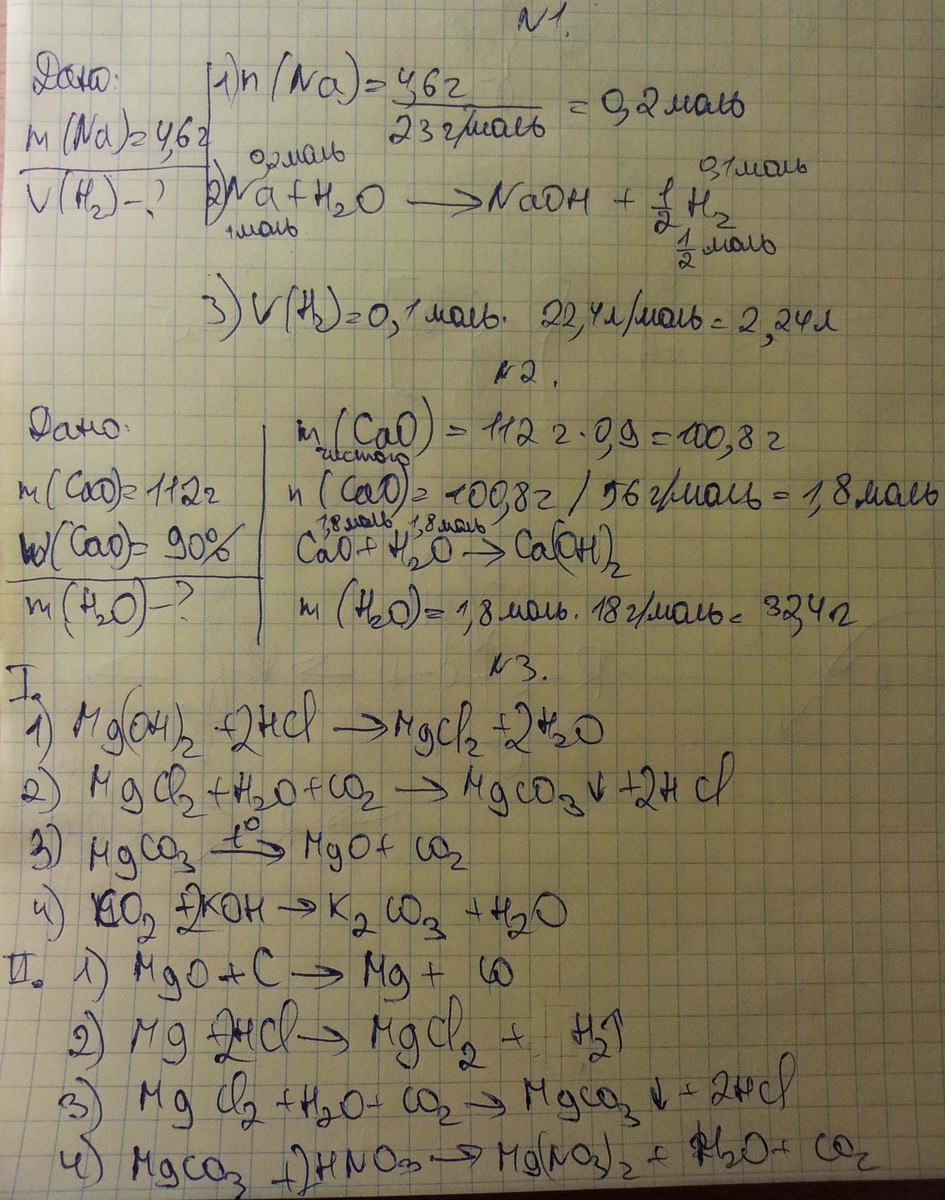 N1.
Дано:
m(Na)=4,6г
V(H₂)-?
1) n(Na)= 4,6г / 23 г/моль = 0,2 моль
0,2 моль 0,1 моль
2) Na + H₂O → NaOH + ½ H₂
1 моль ½ моль
3) V(H₂)=0,1 моль · 22,4 л/моль = 2,24 л
N2.
Дано:
m(CaO)=112г
ω(CaO)= 90%
m(H₂O)-?
m(CaO) = 112 г · 0,9 = 100,8 г
чистого
n(CaO)= 100,8г / 56 г/моль = 1,8 моль
1,8 моль 1,8 моль
CaO + H₂O → Ca(OH)₂
m(H₂O)= 1,8 моль · 18 г/моль = 32,4 г
N3.
I.
1) Mg(OH)₂ + 2HCl → MgCl₂ + 2H₂O
2) MgCl₂ + H₂O + CO₂ → MgCO₃↓ + 2HCl
3) MgCO₃ t° → MgO + CO₂
4) CO₂ + 2KOH → K₂CO₃ + H₂O
II. 1) MgO + C → Mg + CO
2) Mg + 2HCl → MgCl₂ + H₂↑
3) MgCl₂ + H₂O + CO₂ → MgCO₃↓ + 2HCl
4) MgCO₃ + 2HNO₃ → Mg(NO₃)₂ + H₂O + CO₂